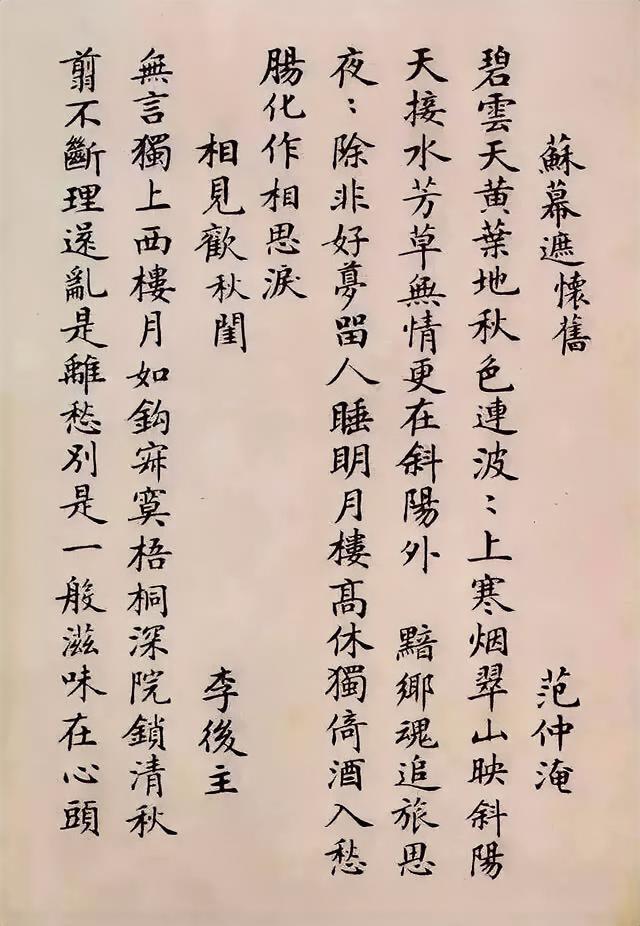 蘇幕遮懷舊 范仲淹
碧雲天黃葉地秋色連波：上寒烟翠山映斜陽
天接水芳草無情更在斜陽外 黯鄉魂追旅思
夜：除非好夢留人睡明月樓高休獨倚酒入愁
腸化作相思淚
相見歡秋閨 李後主
無言獨上西樓月如鈎寂寞梧桐深院鎖清秋
翦不斷理還亂是離愁別是一般滋味在心頭